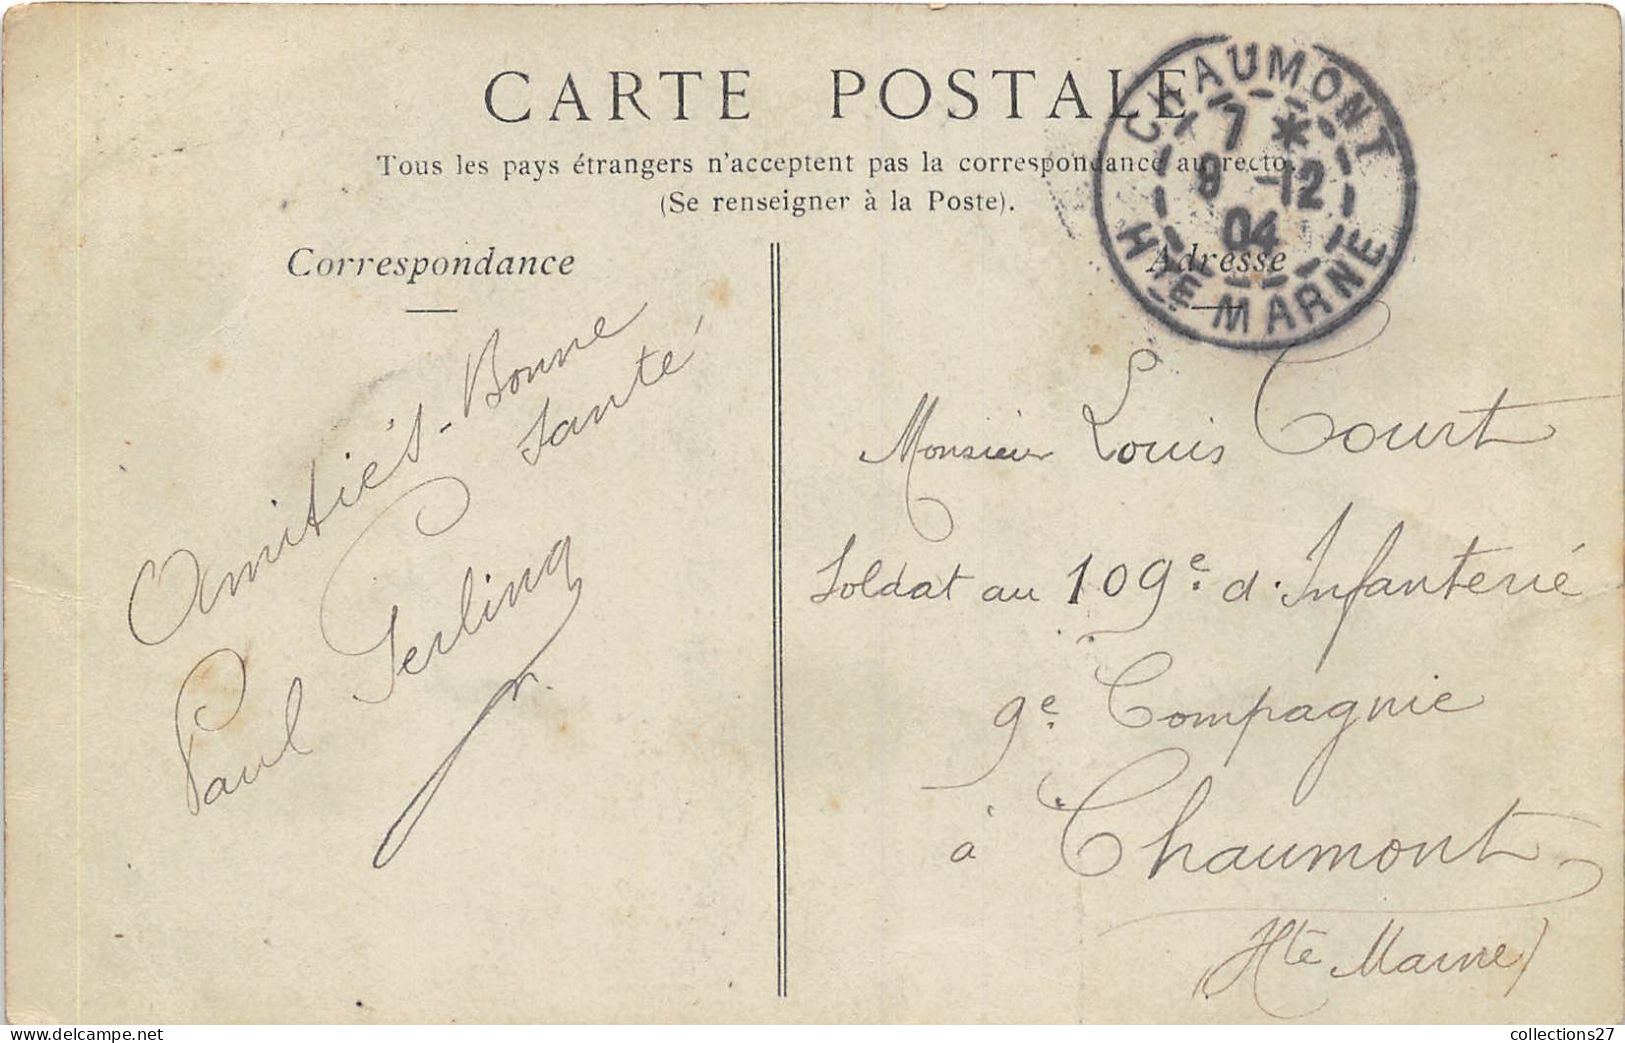 CARTE POSTALE
Tous les pays étrangers n'acceptent pas la correspondance au recto.
(Se renseigner à la Poste).
CHAUMONT
7 *
9 -12
04
Hte MARNE
Correspondance
Amitiés - Bonne
Santé
Paul
Adresse
Monsieur Louis Court
Soldat au 109e d'Infanterie
9e Compagnie
à Chaumont
(Hte Marne)
collections27